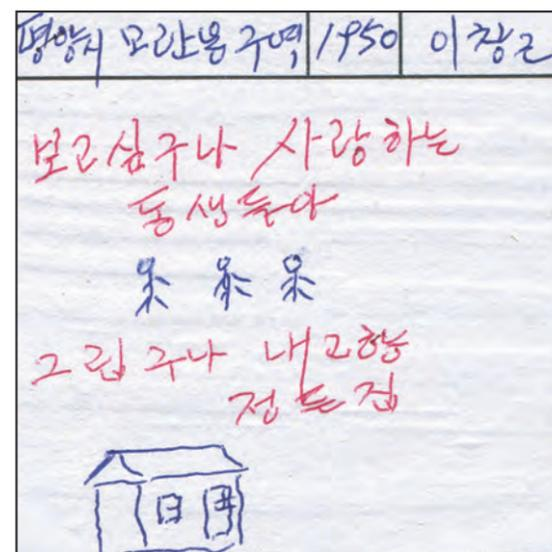 평양시 모란봉 구역 1950 이창근
보고싶구나 사랑하는
동생들아
그립구나 내고향
정든집